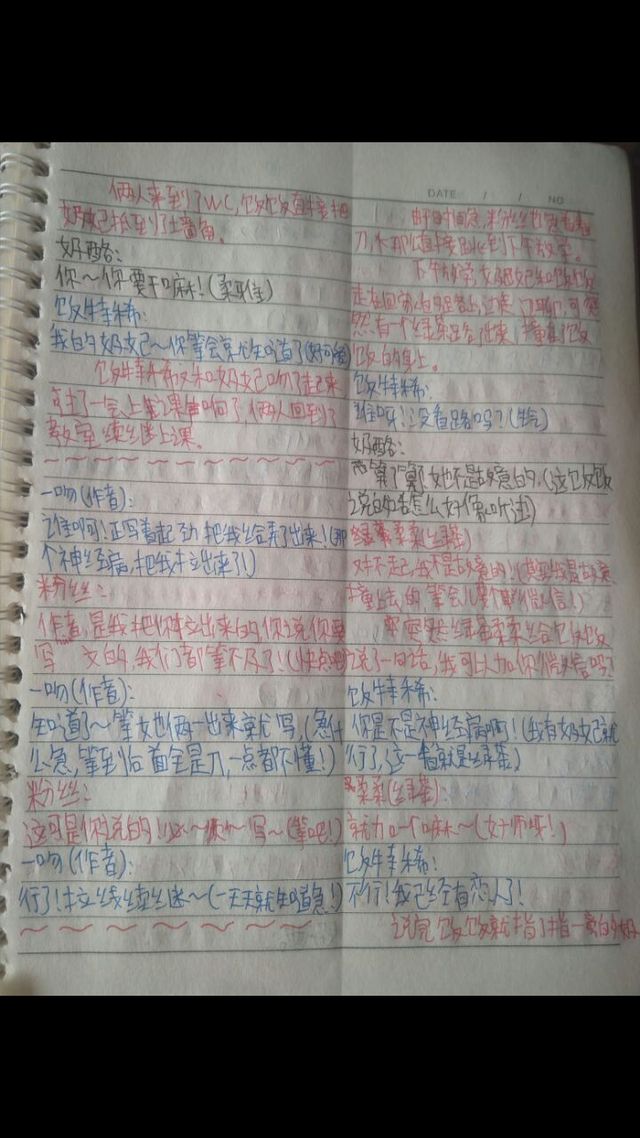 俩人来到了WC,饭饭直接把
奶妲己抵到了土墙角。
奶酪:
你~你要干嘛!(柔弱)
饭特稀:
我的奶妲己~你等会就知道了
饭特稀又和奶妲己吻了起来
了一会上课铃响了,俩人回到了
教室继续上课。
一吻(作者):
谁啊!正写着起劲把我给弄了出来!(那
个神经病,把我拉出来了!)
粉丝:
作者,是我把你拉出来的,你说你要
写 文的,我们都等不及了!(快点吧)
一吻(作者):
知道了~等她俩一出来就写,(急什
么急,等到后面全是刀,一点都不懂!)
粉丝:
这可是你说的! 写~(等吧!)
一吻(作者):
行了!拉线继续~(一天天就知道急!)
DATE / / NO
由于时间急,粉丝也想看看
刀,那直接到下午放学。
下午放学,奶妲己和饭饭
走在回家的路上,
然有一个绿茶路过,撞在了饭
饭的身上。
饭特稀:
谁呀!没看路吗?
奶酪:
算了,她也不是故意的,(这饭饭
说的话怎么好像听过)
柔柔(绿茶)
对不起,我不是故意的!(其实我是故意
撞上去的,等会儿要个微信!)
突然绿茶柔柔给饭饭
说了一句话,我可以加你微信吗?
饭特稀:
你是不是神经病啊!(我有奶妲己就
行了,这一看就是绿茶)
柔柔(绿茶):
就加一个嘛~(好帅呀!)
饭特稀:
不行!我已经有恋人了!
说完饭饭就指了指一旁的奶